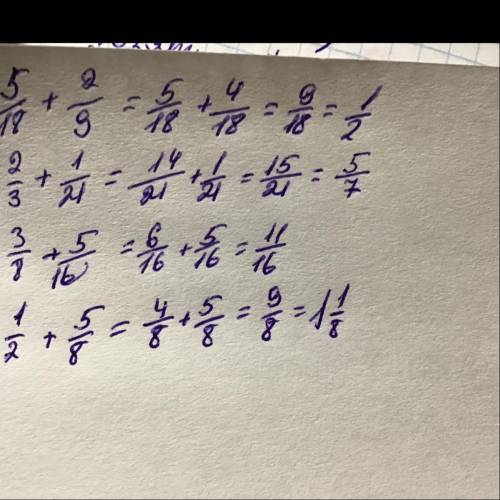 5/18 + 2/9 = 5/18 + 4/18 = 9/18 = 1/2
2/3 + 1/21 = 14/21 + 1/21 = 15/21 = 5/7
3/8 + 5/16 = 6/16 + 5/16 = 11/16
1/2 + 5/8 = 4/8 + 5/8 = 9/8 = 1 1/8